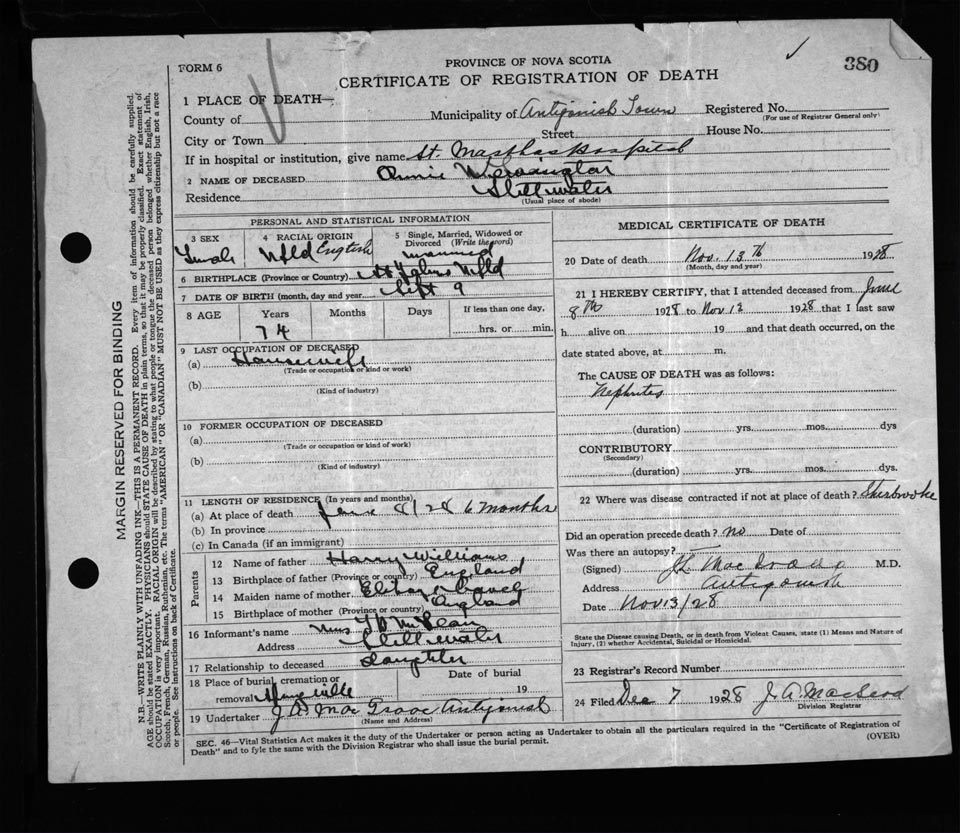 FORM 6
PROVINCE OF NOVA SCOTIA
380
CERTIFICATE OF REGISTRATION OF DEATH
1 PLACE OF DEATH—
County of
Municipality of Antigonish Town
Registered No.
(For use of Registrar General only)
City or Town
Street
House No.
If in hospital or institution, give name St. Marthas Hospital
2 NAME OF DECEASED Annie
Residence Stillwater
(Usual place of abode)
PERSONAL AND STATISTICAL INFORMATION
3 SEX
4 RACIAL ORIGIN
5 Single, Married, Widowed or Divorced (Write the word)
Female
Nfld English
6 BIRTHPLACE (Province or Country) Nfld
7 DATE OF BIRTH (month, day and year Sept 9
8 AGE
Years
Months
Days
If less than one day,
74
hrs. or min.
9 LAST OCCUPATION OF DECEASED
(a) Housewife
(Trade or occupation or kind or work)
(b)
(Kind of industry)
10 FORMER OCCUPATION OF DECEASED
(a)
(Trade or occupation or kind of work)
(b)
(Kind of industry)
11 LENGTH OF RESIDENCE (In years and months)
(a) At place of death June 8/28 6 months
(b) In province
(c) In Canada (if an immigrant)
Parents
12 Name of father Harry Williams
13 Birthplace of father (Province or country) England
14 Maiden name of mother
15 Birthplace of mother (Province or country) England
16 Informant's name Mrs
Address Stillwater
17 Relationship to deceased daughter
18 Place of burial, cremation or removal
Date of burial
19
19 Undertaker J D Mac Isaac Antigonish
(Name and Address)
MEDICAL CERTIFICATE OF DEATH
20 Date of death Nov. 13th 1928
(Month, day and year)
21 I HEREBY CERTIFY, that I attended deceased from June
8th 1928 to Nov 12 1928 that I last saw
h alive on 19 and that death occurred, on the
date stated above, at m.
The CAUSE OF DEATH was as follows:
Nephrites
(duration) yrs. mos. dys
CONTRIBUTORY
(Secondary)
(duration) yrs. mos. dys.
22 Where was disease contracted if not at place of death? Sherbrooke
Did an operation precede death? no Date of
Was there an autopsy?
(Signed) M.D.
Address Antigonish
Date Nov 13/28
State the Disease causing Death, or in death from Violent Causes, state (1) Means and Nature of
Injury, (2) whether Accidental, Suicidal or Homicidal.
23 Registrar's Record Number
24 Filed Dec 7 1928 J. A. MacLeod
Division Registrar
SEC. 46—Vital Statistics Act makes it the duty of the Undertaker or person acting as Undertaker to obtain all the particulars required in the "Certificate of Registration of
Death" and to fyle the same with the Division Registrar who shall issue the burial permit.
(OVER)
MARGIN RESERVED FOR BINDING
N.B.—WRITE PLAINLY WITH UNFADING INK—THIS IS A PERMANENT RECORD. Every item of information should be carefully supplied.
AGE should be stated EXACTLY. PHYSICIANS should STATE CAUSE OF DEATH in plain terms, so that it may be properly classified. Exact statement of
OCCUPATION is very important. RACIAL ORIGIN will be described by stating to what people or tongue the deceased person belonged whether English, Irish,
Scotch, French, German, Russian, Ruthenian, etc. The terms "AMERICAN" OR "CANADIAN" MUST NOT BE USED as they express citizenship but not a race
or people. See instructions on back of Certificate.